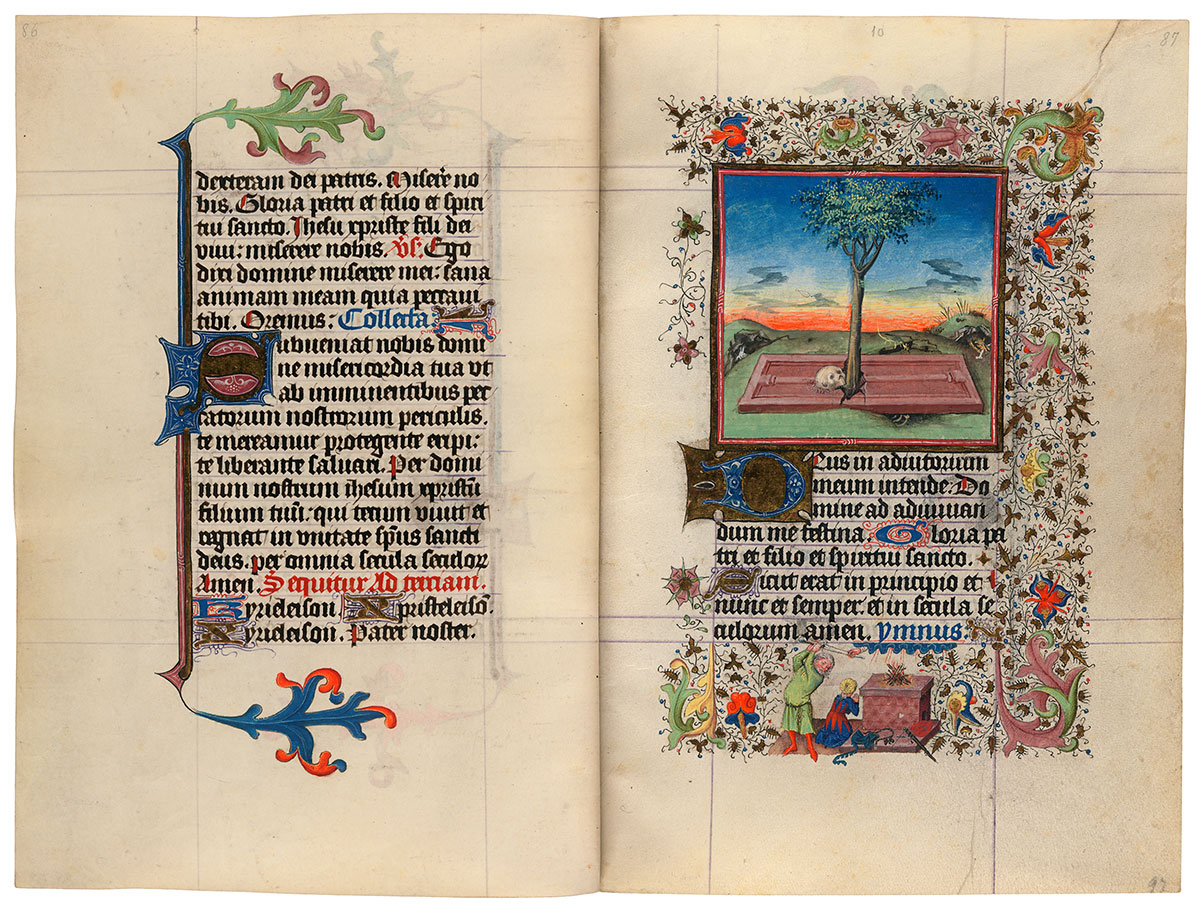 86
dexteram dei patris. Misere no
bis. Gloria patri et filio et spiri
tui sancto. Ihesu xpriste fili dei
viui: miserere nobis. vs. Ego
dixi domine miserere mei: sana
animam meam quia peccaui
tibi. Oremus: Collecta.
Subueniat nobis domi
ne misericordia tua vt
ab imminentibus pec
catorum nostrorum periculis.
te mereamur protegente eripi:
te liberante saluari. Per domi
num nostrum ihesum xpristū
filium tuū. qui tecum viuit et
regnat in vnitate spūs sancti
deus. per omnia secula seculorꝝ
Amen. Sequitur Ad terciam.
Kyrieleison. Xpristeleisō.
Kyrieleison. Pater noster.
10
87
Deus in adiutorium
meum intende: Do
mine ad adiuuan
dum me festina. Gloria pa
tri et filio et spiritui sancto.
Sicut erat in principio et
nunc et semper. et in secula se
culorum amen. ymnus.
97